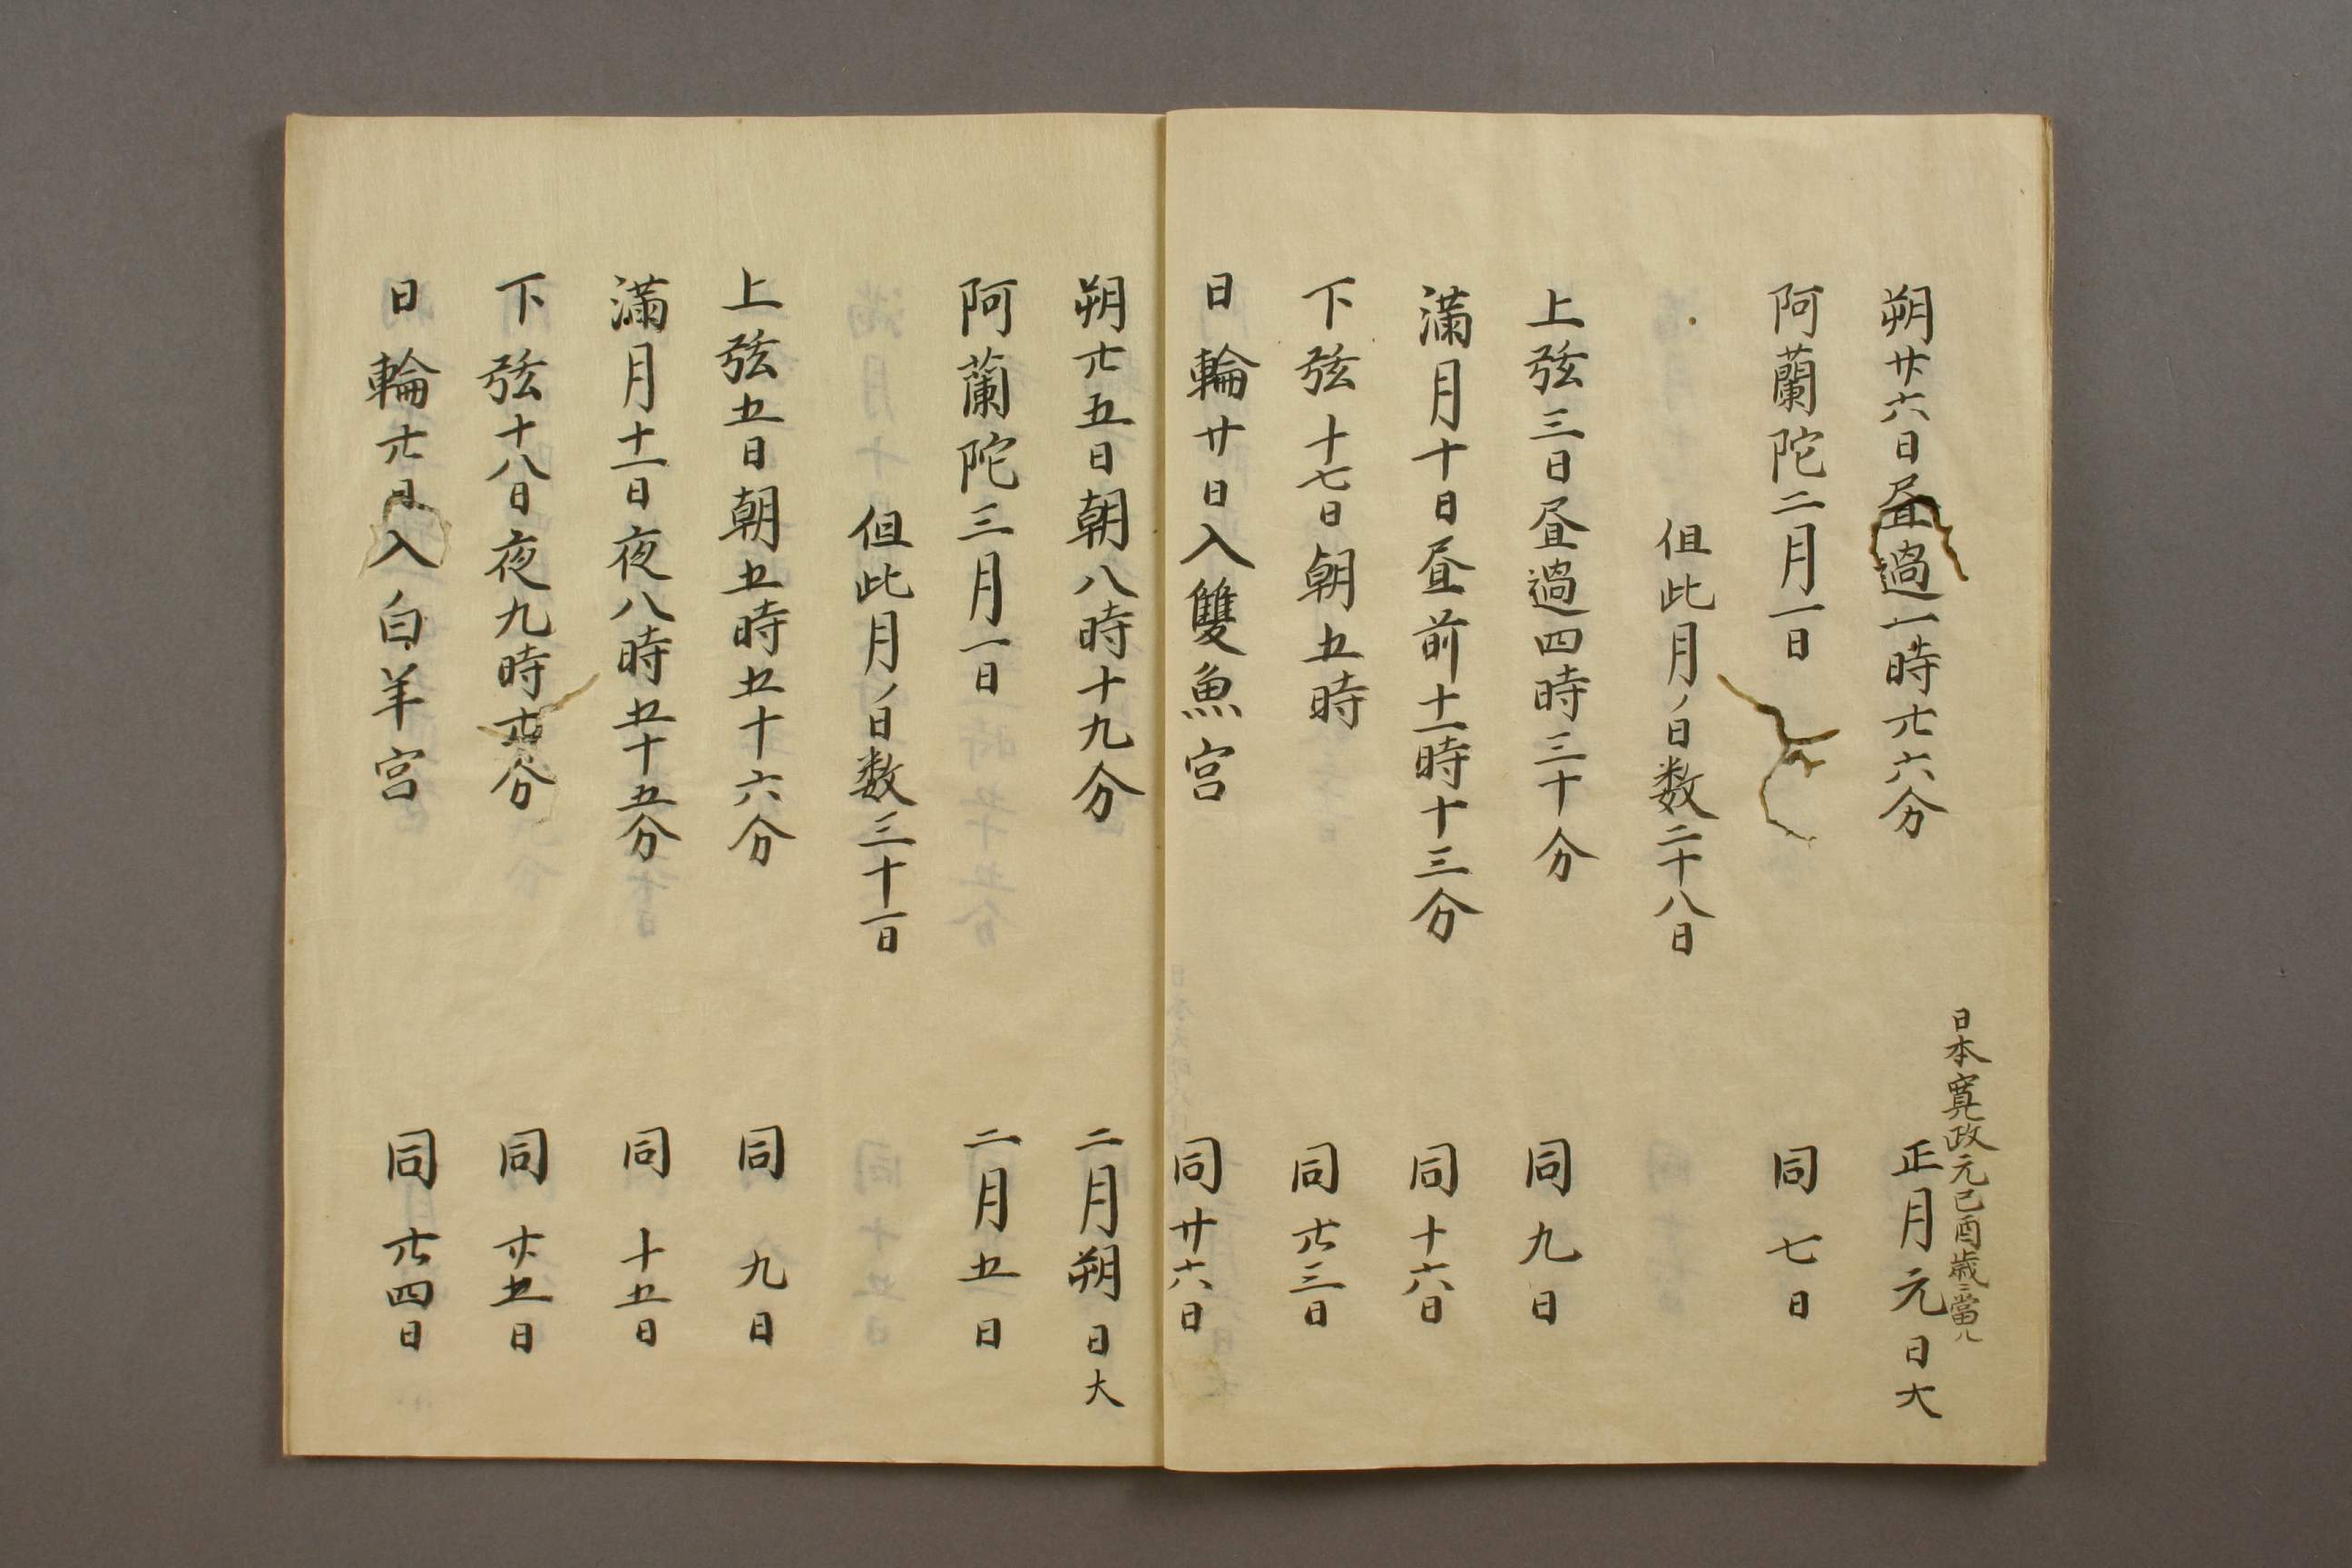 日本寛政元己酉歳ニ當ル
朔廿六日昼過一時廿六分 正月元日大
阿蘭陀二月一日 同七日
但此月ノ日数二十八日
上弦三日昼過四時三十分 同九日
満月十日昼前十一時十三分 同十六日
下弦十七日朝五時 同廿三日
日輪廿日入雙魚宮 同廿六日
朔廿五日朝八時十九分 二月朔日大
阿蘭陀三月一日 二月五日
但此月ノ日数三十一日
上弦五日朝五時五十六分 同九日
満月十一日夜八時五十五分 同十五日
下弦十八日夜九時廿分 同廿五日
日輪廿日入白羊宮 同廿四日